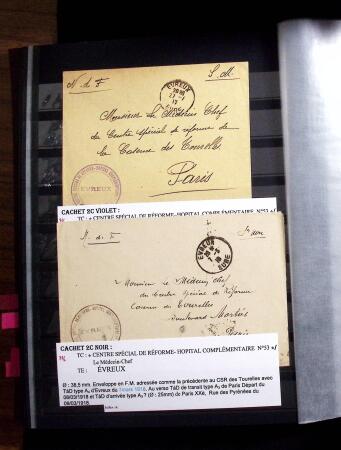 N. d. F S. M.
EVREUX
EURE
Monsieur le Médecin Chef
du Centre spécial de réforme de
la Caserne des Tourelles
Paris
EVREUX
CACHET 2C VIOLET :
TC : + CENTRE SPÉCIAL DE RÉFORME- HOPITAL COMPLÉMENTAIRE N°53
EVREUX
EURE
Monsieur le Médecin chef
du Centre Spécial de Réforme
Caserne des Tourelles
Boulevard Mortier
Paris
CACHET 2C NOIR :
TC : + CENTRE SPÉCIAL DE RÉFORME- HOPITAL COMPLÉMENTAIRE N°53 +/
Le Médecin-Chef
TE : ÉVREUX
Ø : 38,5 mm. Enveloppe en F.M. adressée comme la précédente au CSR des Tourelles avec
TàD type A₃ d'Evreux du 7 mars 1918. Au verso TàD de transit type A₃ de Paris Départ du
08/03/1918 et TàD d'arrivée type A₃ ? (Ø : 25mm) de Paris XXè, Rue des Pyrénées du
09/03/1918.